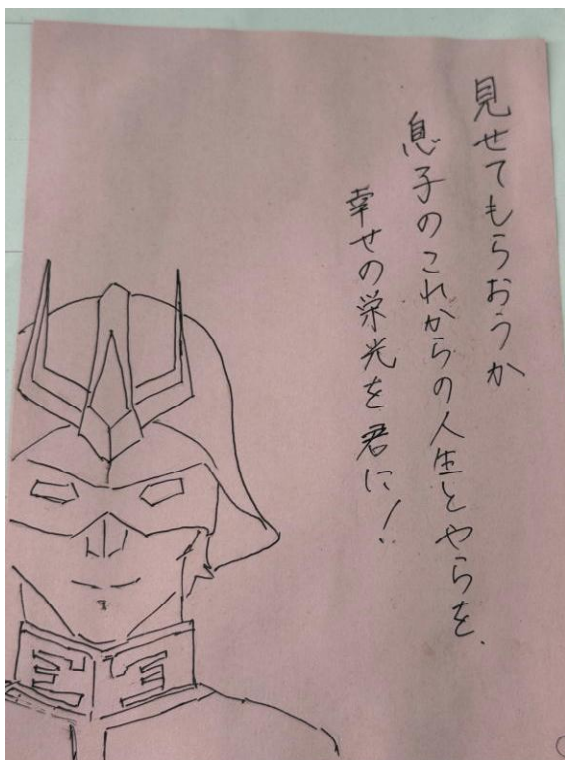 見せてもらおうか
息子のこれからの人生とやらを、
幸せの栄光を君に!